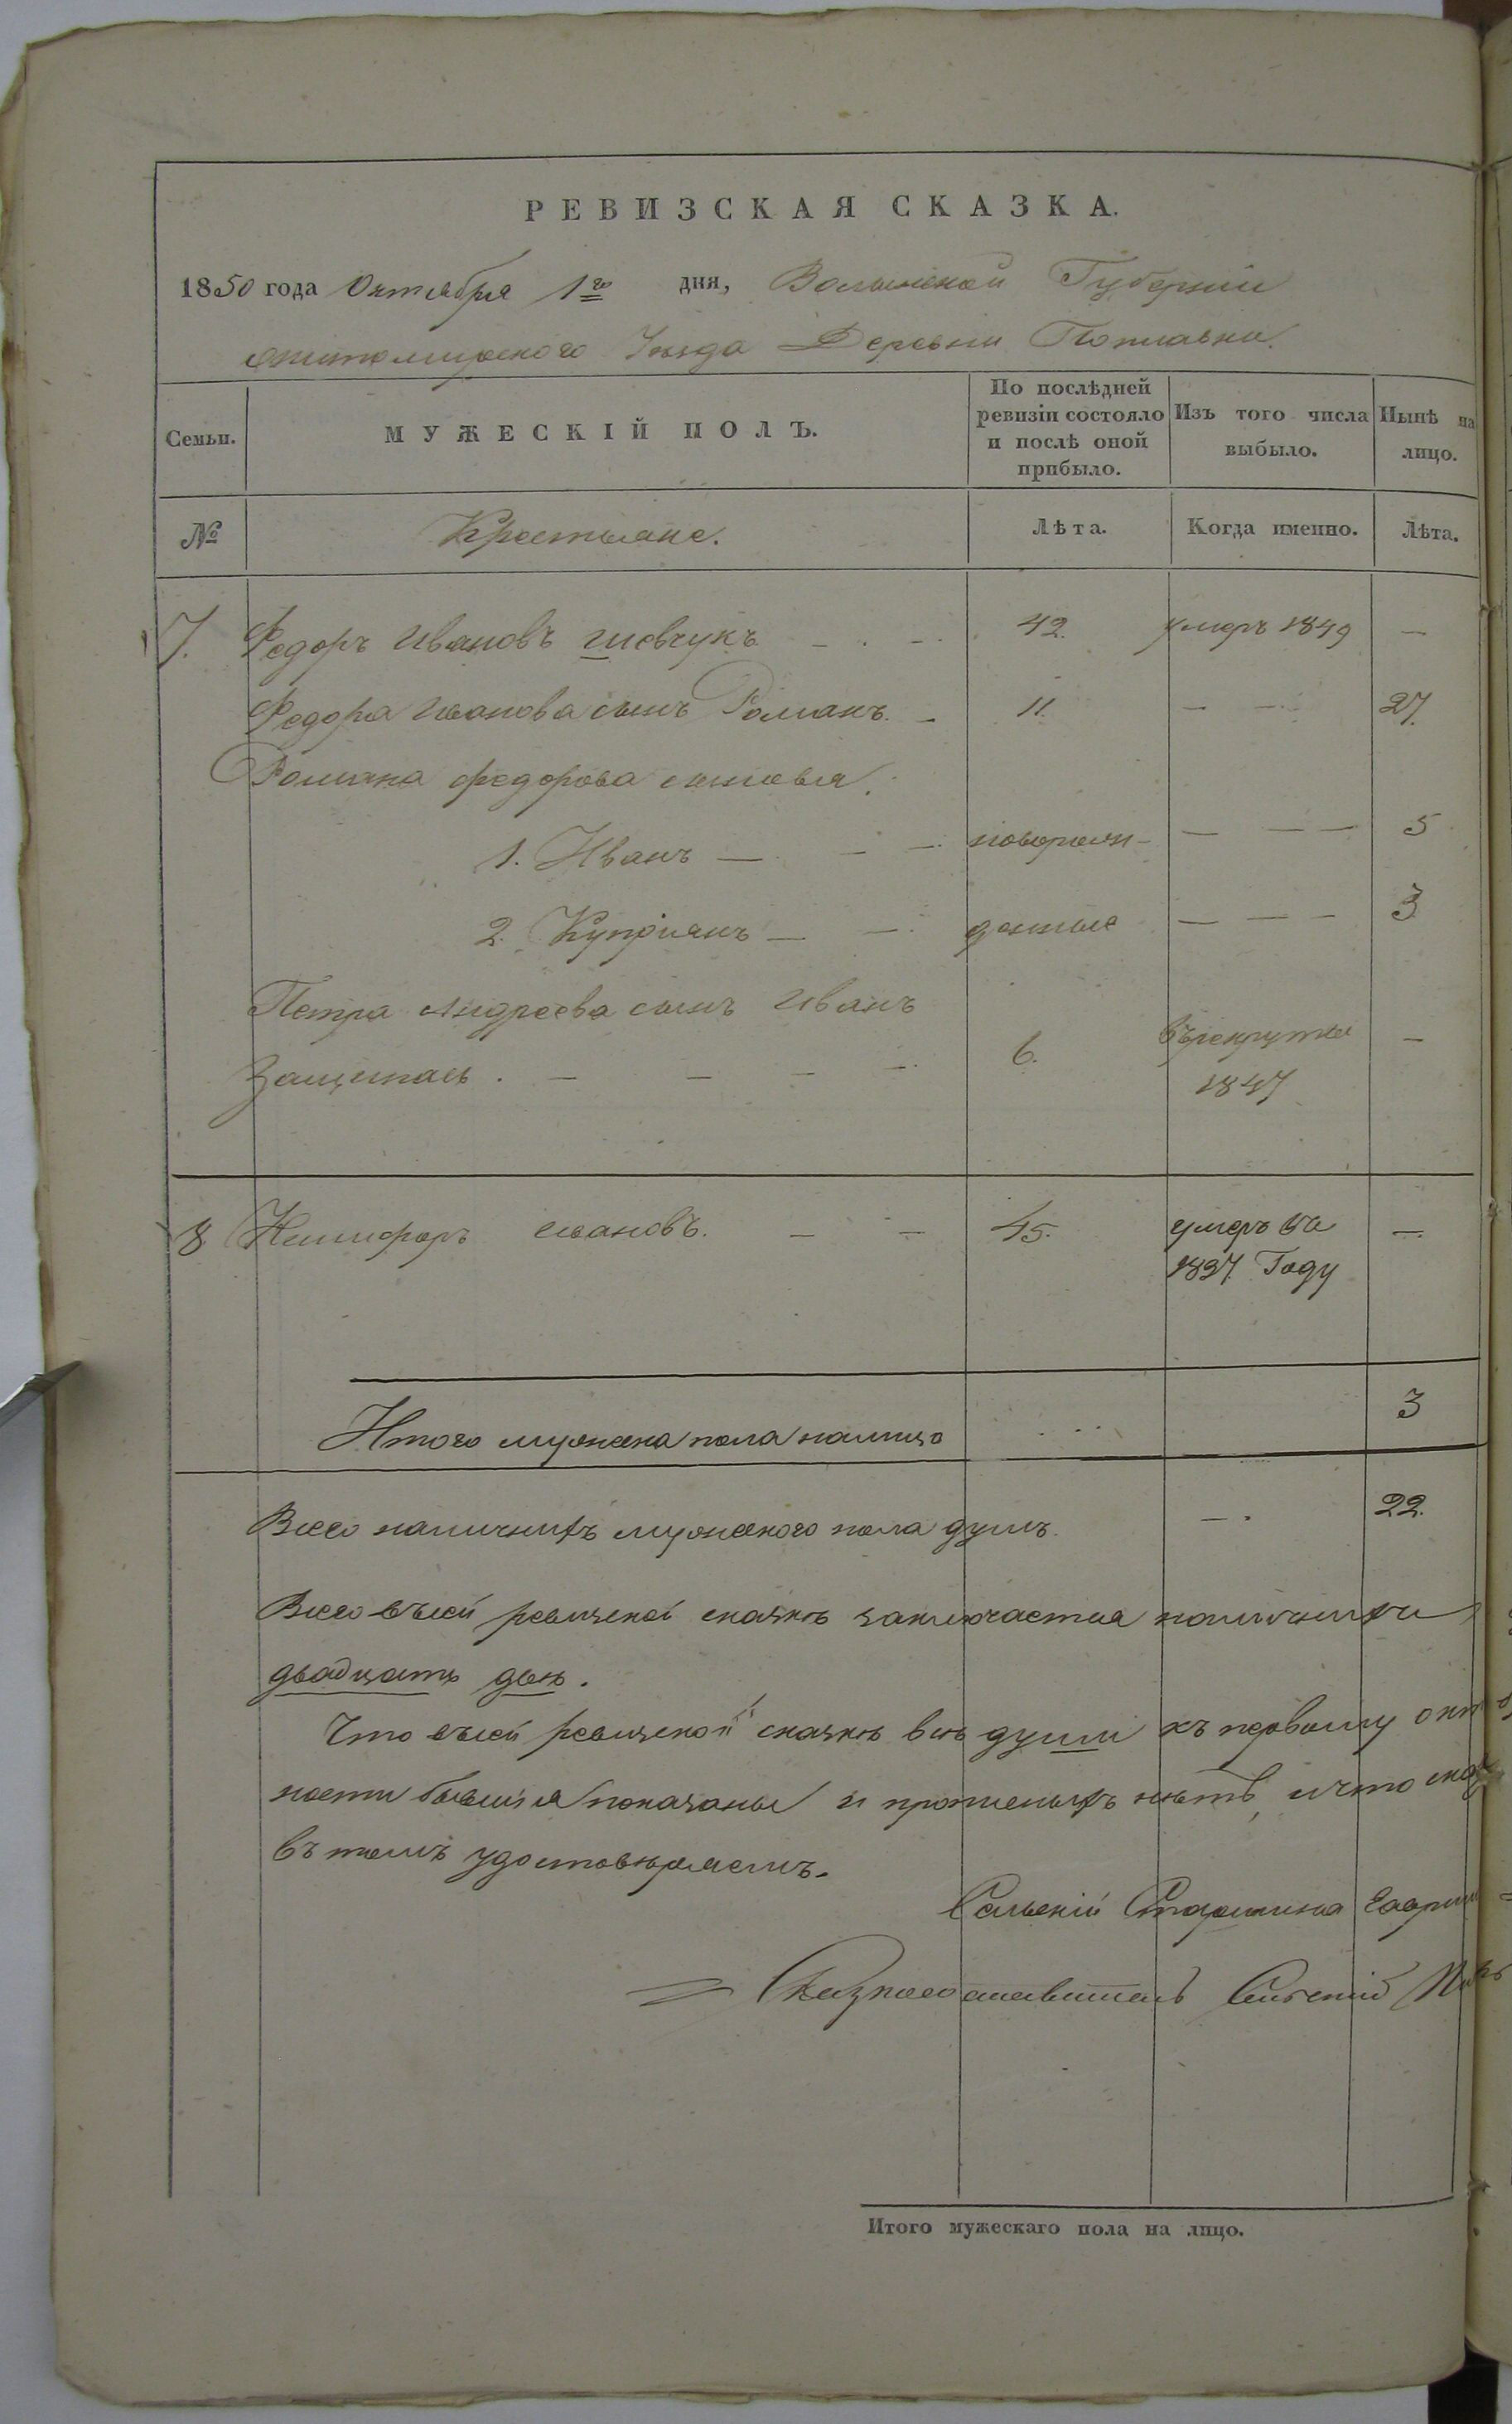 РЕВИЗСКАЯ СКАЗКА.
1850 года Октября 1го дня, Волынской Губерніи
Житомирского Уѣзда Деревни Поплавки.
Семьи.
МУЖЕСКІЙ ПОЛЪ.
По послѣдней ревизіи состояло и послѣ оной прибыло.
Изъ того числа выбыло.
Нынѣ на лицо.
№ Крестьяне. Лѣта. Когда именно. Лѣта.
7. Федоръ Ивановъ Шевчукъ — 42. умеръ 1849 —
Федора Иванова сынъ Романъ. — 11. — — 27.
Романа Федорова сыновья.
1. Иванъ — — — новорож- — — — 5
2. Купріянъ — — денные — — — 3
Петра Андреева сынъ Иванъ
— — — — 6. въ рекруты —
1847
8 Никифоръ Ивановъ. — — 45. умеръ въ —
1837 Году
Итого мужеска пола налицо 3
Всего наличныхъ мужеского пола душъ. — 22.
Всего въ сей ревизской сказкѣ заключается наличныхъ
двадцать двѣ.
Что въ сей ревизской сказкѣ всѣ души къ первому окт
ности бывшія показаны и нѣтъ, и что
въ томъ удостовѣряемъ.
Сельскій Старшина Гаврил
Сказкосоставитель Сельскій
Итого мужескаго пола на лицо.